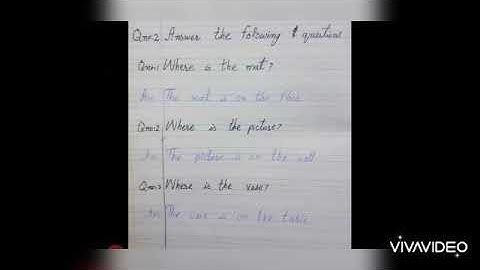 Qno:2 Answer the following questions
Qno:1 Where is the mat?
An: The mat is on the floor
Qno:2 Where is the picture?
An: The picture is on the wall
Qno:3 Where is the vase?
An: The vase is on the table
VIVAVIDEO